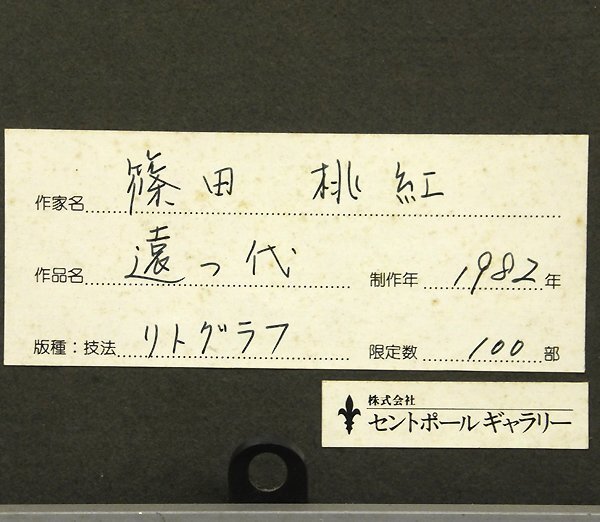 作家名 篠田 桃紅
作品名 遠つ代 制作年 1982年
版種：技法 リトグラフ 限定数 100部
株式会社
セントポールギャラリー